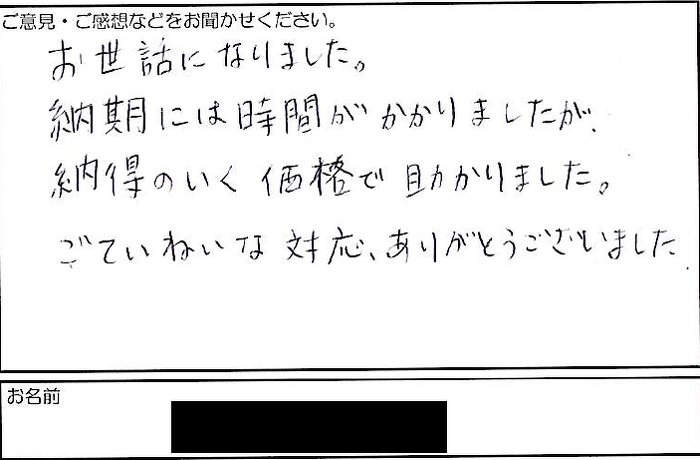 ご意見・ご感想などをお聞かせください。
お世話になりました。
納期には時間がかかりましたが、
納得のいく価格で助かりました。
ごていねいな対応、ありがとうございました
お名前